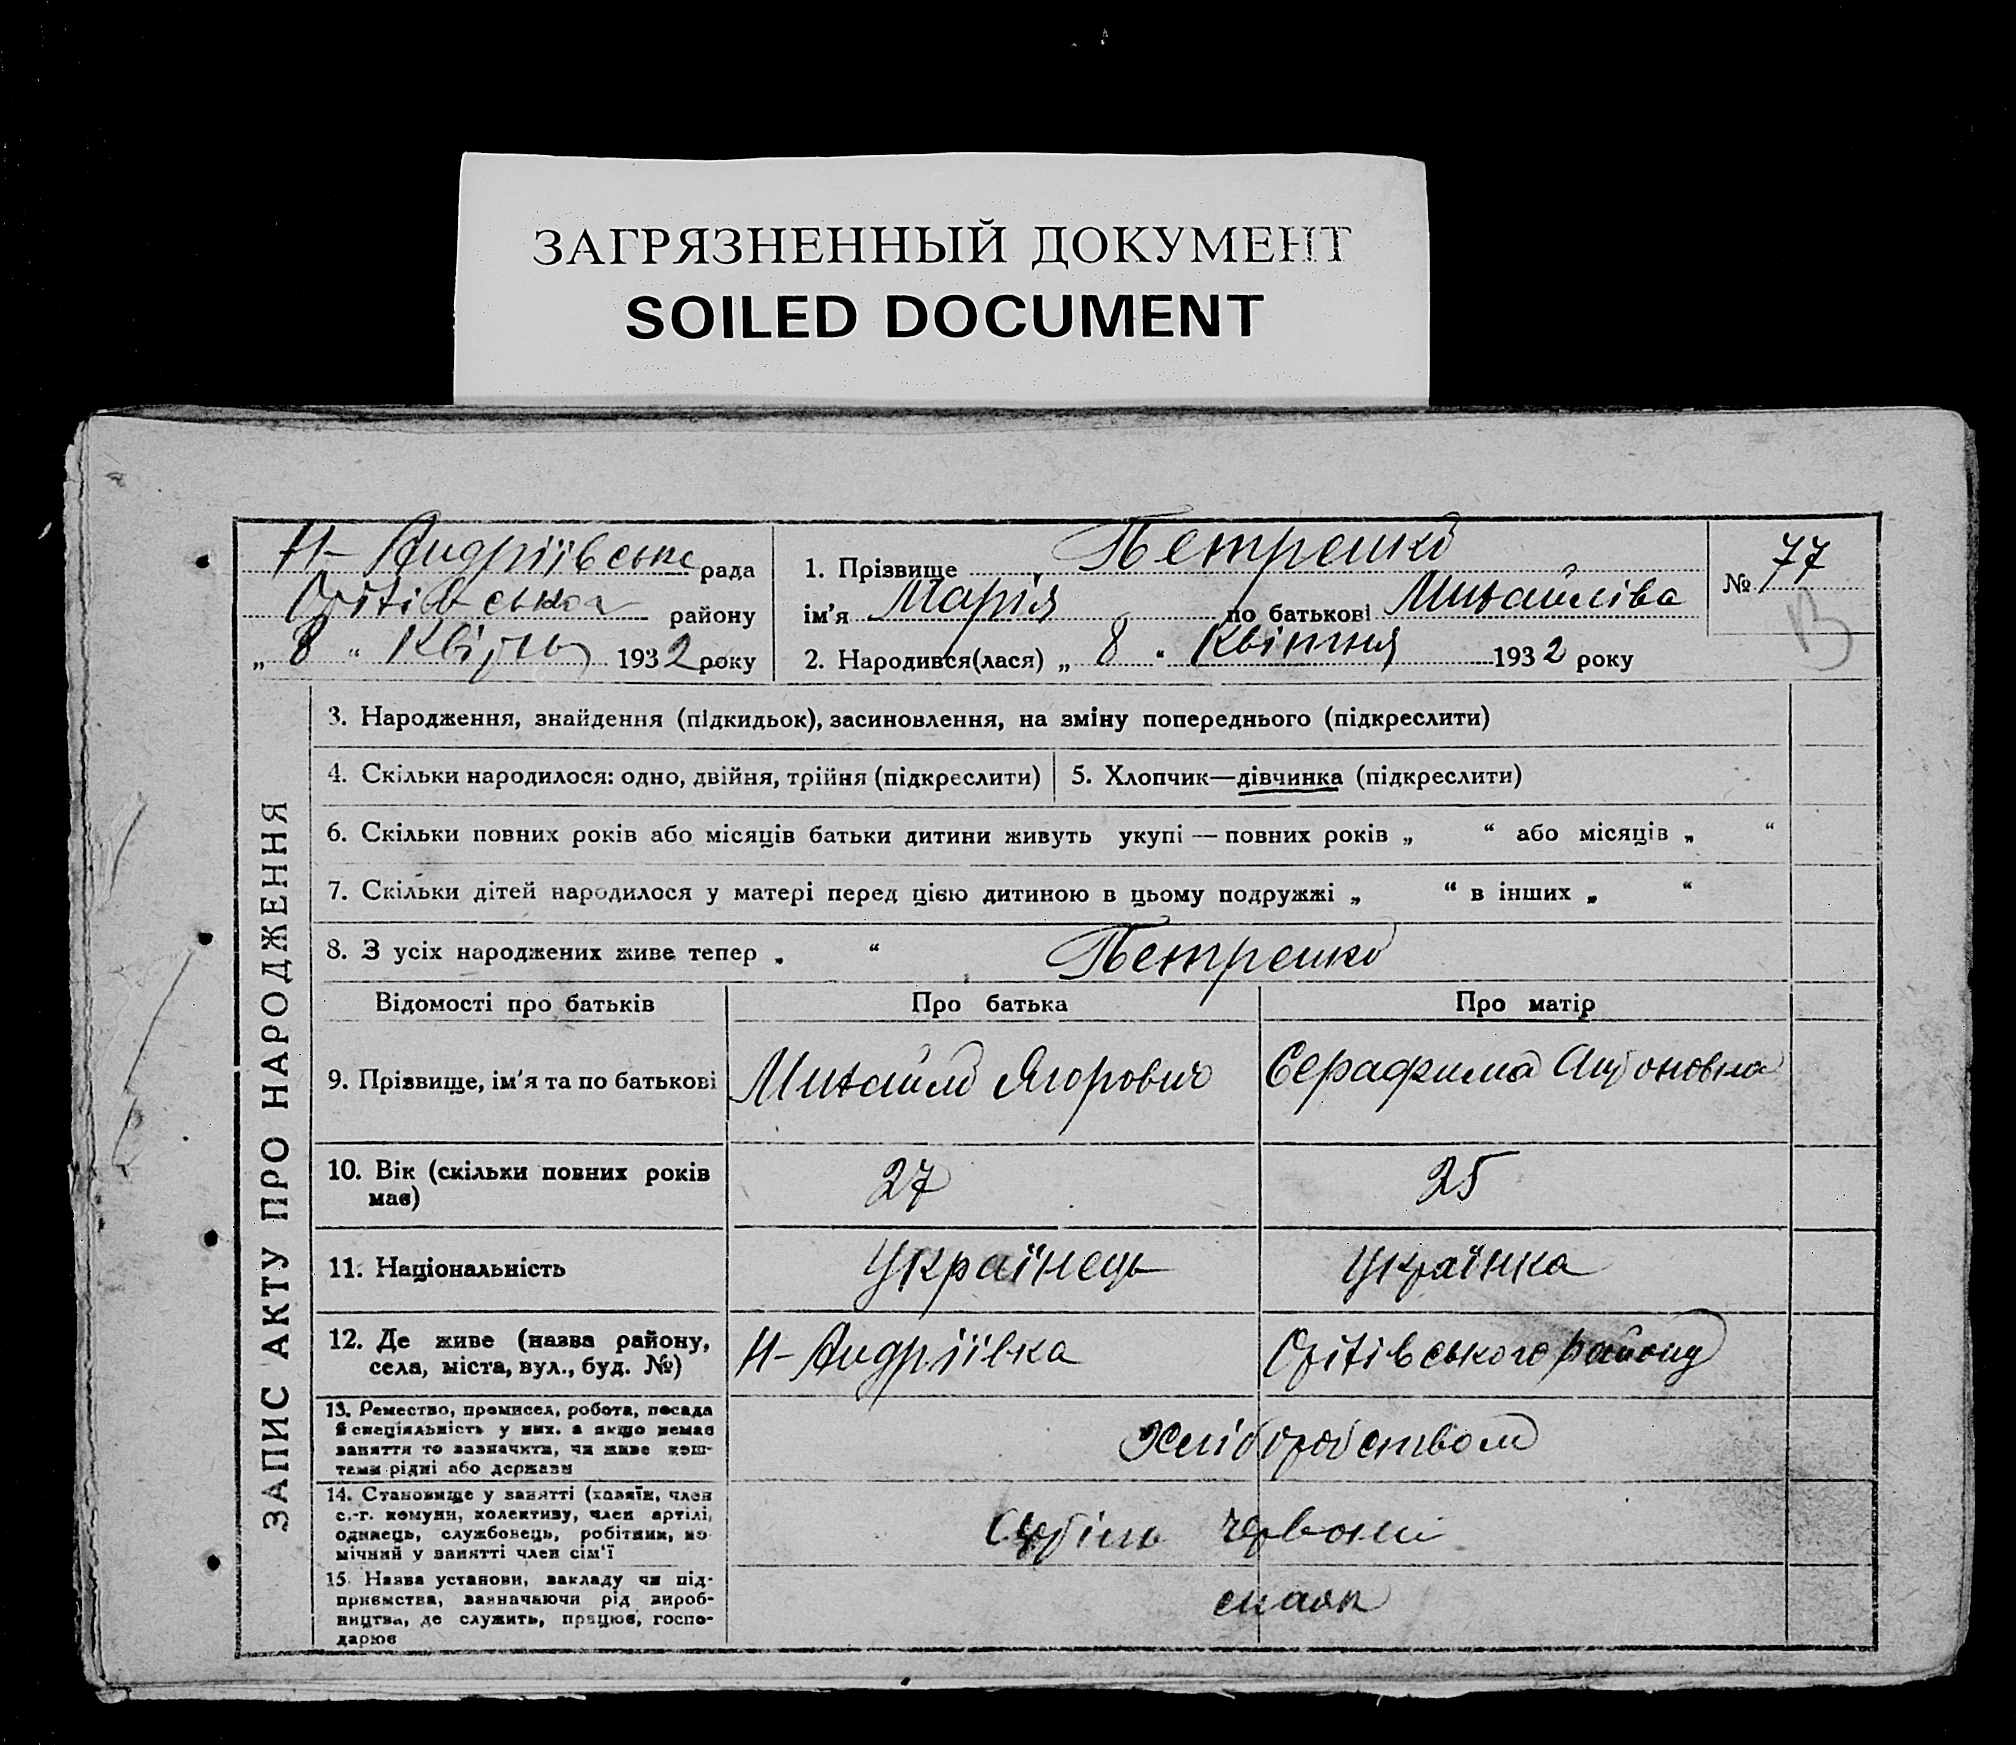 ЗАГРЯЗНЕННЫЙ ДОКУМЕНТ
SOILED DOCUMENT
ЗАПИС АКТУ ПРО НАРОДЖЕННЯ
Н-Андріївська рада
району
„ 8 “ Квітня 1932 року
1. Прізвище Петренко
ім'я Марія по батькові Михайлівa
2. Народився(лася) „ 8 “ Квітня 1932 року
№ 77
В
3. Народження, знайдення (підкидьок), засиновлення, на зміну попереднього (підкреслити)
4. Скільки народилося: одно, двійня, трійня (підкреслити) 5. Хлопчик—дівчинка (підкреслити)
6. Скільки повних років або місяців батьки дитини живуть укупі — повних років „ “ або місяців „ “
7. Скільки дітей народилося у матері перед цією дитиною в цьому подружжі „ “ в інших „ “
8. З усіх народжених живе тепер „ “ Петренко
Відомості про батьків Про батька Про матір
9. Прізвище, ім'я та по батькові Михайло Ягорович Серафима Антоновна
10. Вік (скільки повних років
має) 27 25
11. Національність Українець Українка
12. Де живе (назва району,
села, міста, вул., буд. №) Н-Андріївка району
13. Ремество, промисел, робота, посада
й спеціяльність у них, а якщо немає
заняття то зазначити, чи живе кош-
тами рідні або держави Хліборобством
14. Становище у занятті (хазяїн, член
с.-г. комуни, колективу, член артілі,
одинець, службовець, робітник, по-
мічний у занятті член сім'ї
15. Назва установи, закладу чи під-
приємства, зазначаючи рід вироб-
ництва, де служить, працює, госпо-
дарює